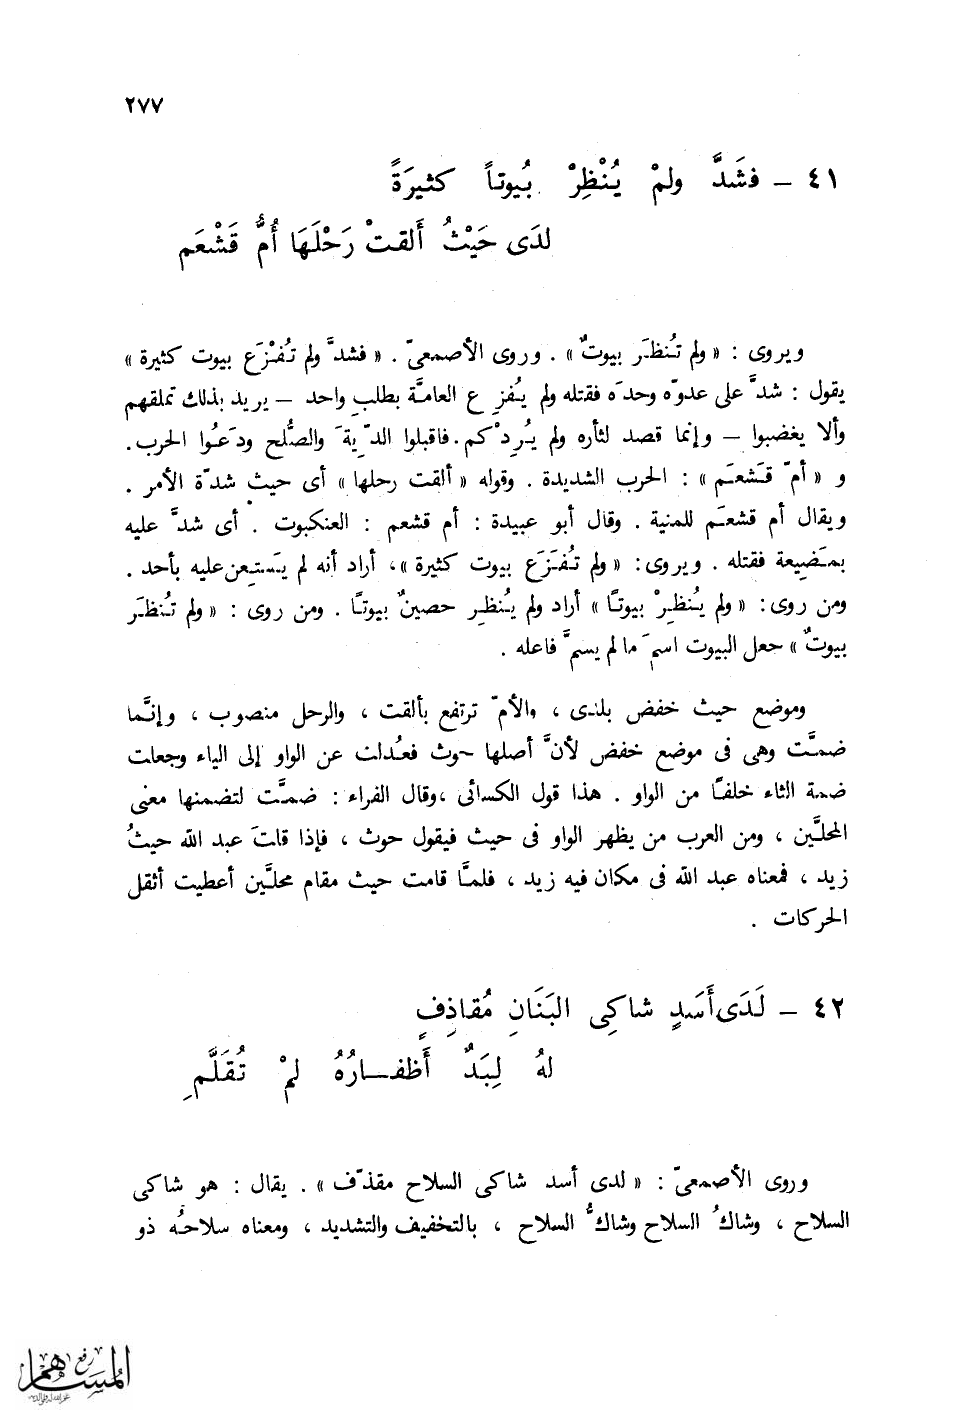 ٢٧٧
٤١ – فشَدَّ ولمْ يُنْظِرْ بُيوتاً كثيرَةً
لدَى حَيْثُ أَلقتْ رَحْلَهَا أُمُّ قَشْعَم
ويروى : « ولم تُنظَر بيوتٌ » . وروى الأصمعىّ . « فشدَّ ولم تُفْزَع بيوت كثيرة »
يقول : شدَّ على عدوّه وحدَه فقتله ولم يُفزِع العامّة بطلبِ واحد – يريد بذلك تملقهم
وألا يغضبوا – وإنما قصد لثأره ولم يُرِدْكم . فاقبلوا الدِّيةَ والصُّلح ودَعُوا الحرب .
و « أمّ قَشعَم » : الحرب الشديدة . وقوله « ألقت رحلها » أى حيث شدّة الأمر .
ويقال أم قشعَم للمنية . وقال أبو عبيدة : أم قشعم : العنكبوت . أى شدَّ عليه
بمَضِيعة فقتله . ويروى : « ولم تُفزَع بيوت كثيرة » ، أراد أنه لم يَستعِن عليه بأحد .
ومن روى : « ولم يُنظِرْ بيوتًا » أراد ولم يُنظِر حصينٌ بيوتًا . ومن روى : « ولم تُنظَر
بيوتٌ » جعل البيوت اسمَ ما لم يسمَّ فاعله .
وموضع حيث خفض بلدى ، والأمّ ترتفع بألقت ، والرحل منصوب ، وإنَّما
ضمَّت وهى فى موضع خفض لأنَّ أصلها حوث فعُدلت عن الواو إلى الياء وجعلت
ضمة الثاء خلفًا من الواو . هذا قول الكسائى ، وقال الفراء : ضمَّت لتضمنها معنى
المحلَّين ، ومن العرب من يظهر الواو فى حيث فيقول حوث ، فإذا قلتَ عبد الله حيثُ
زيد ، فمعناه عبد الله فى مكان فيه زيد ، فلمَّا قامت حيث مقام محلَّين أعطيت أثقل
الحركات .
٤٢ – لَدَى أَسَدٍ شاكِى البَنَانِ مُقاذِفٍ
لهُ لِبَدٌ أَظفـارُهُ لمْ تُقَلَّمِ
وروى الأصمعىّ : « لدى أسد شاكى السلاح مقذّف » . يقال : هو شاكى
السلاح ، وشاكُ السلاح وشاكُّ السلاح ، بالتخفيف والتشديد ، ومعناه سلاحُه ذو